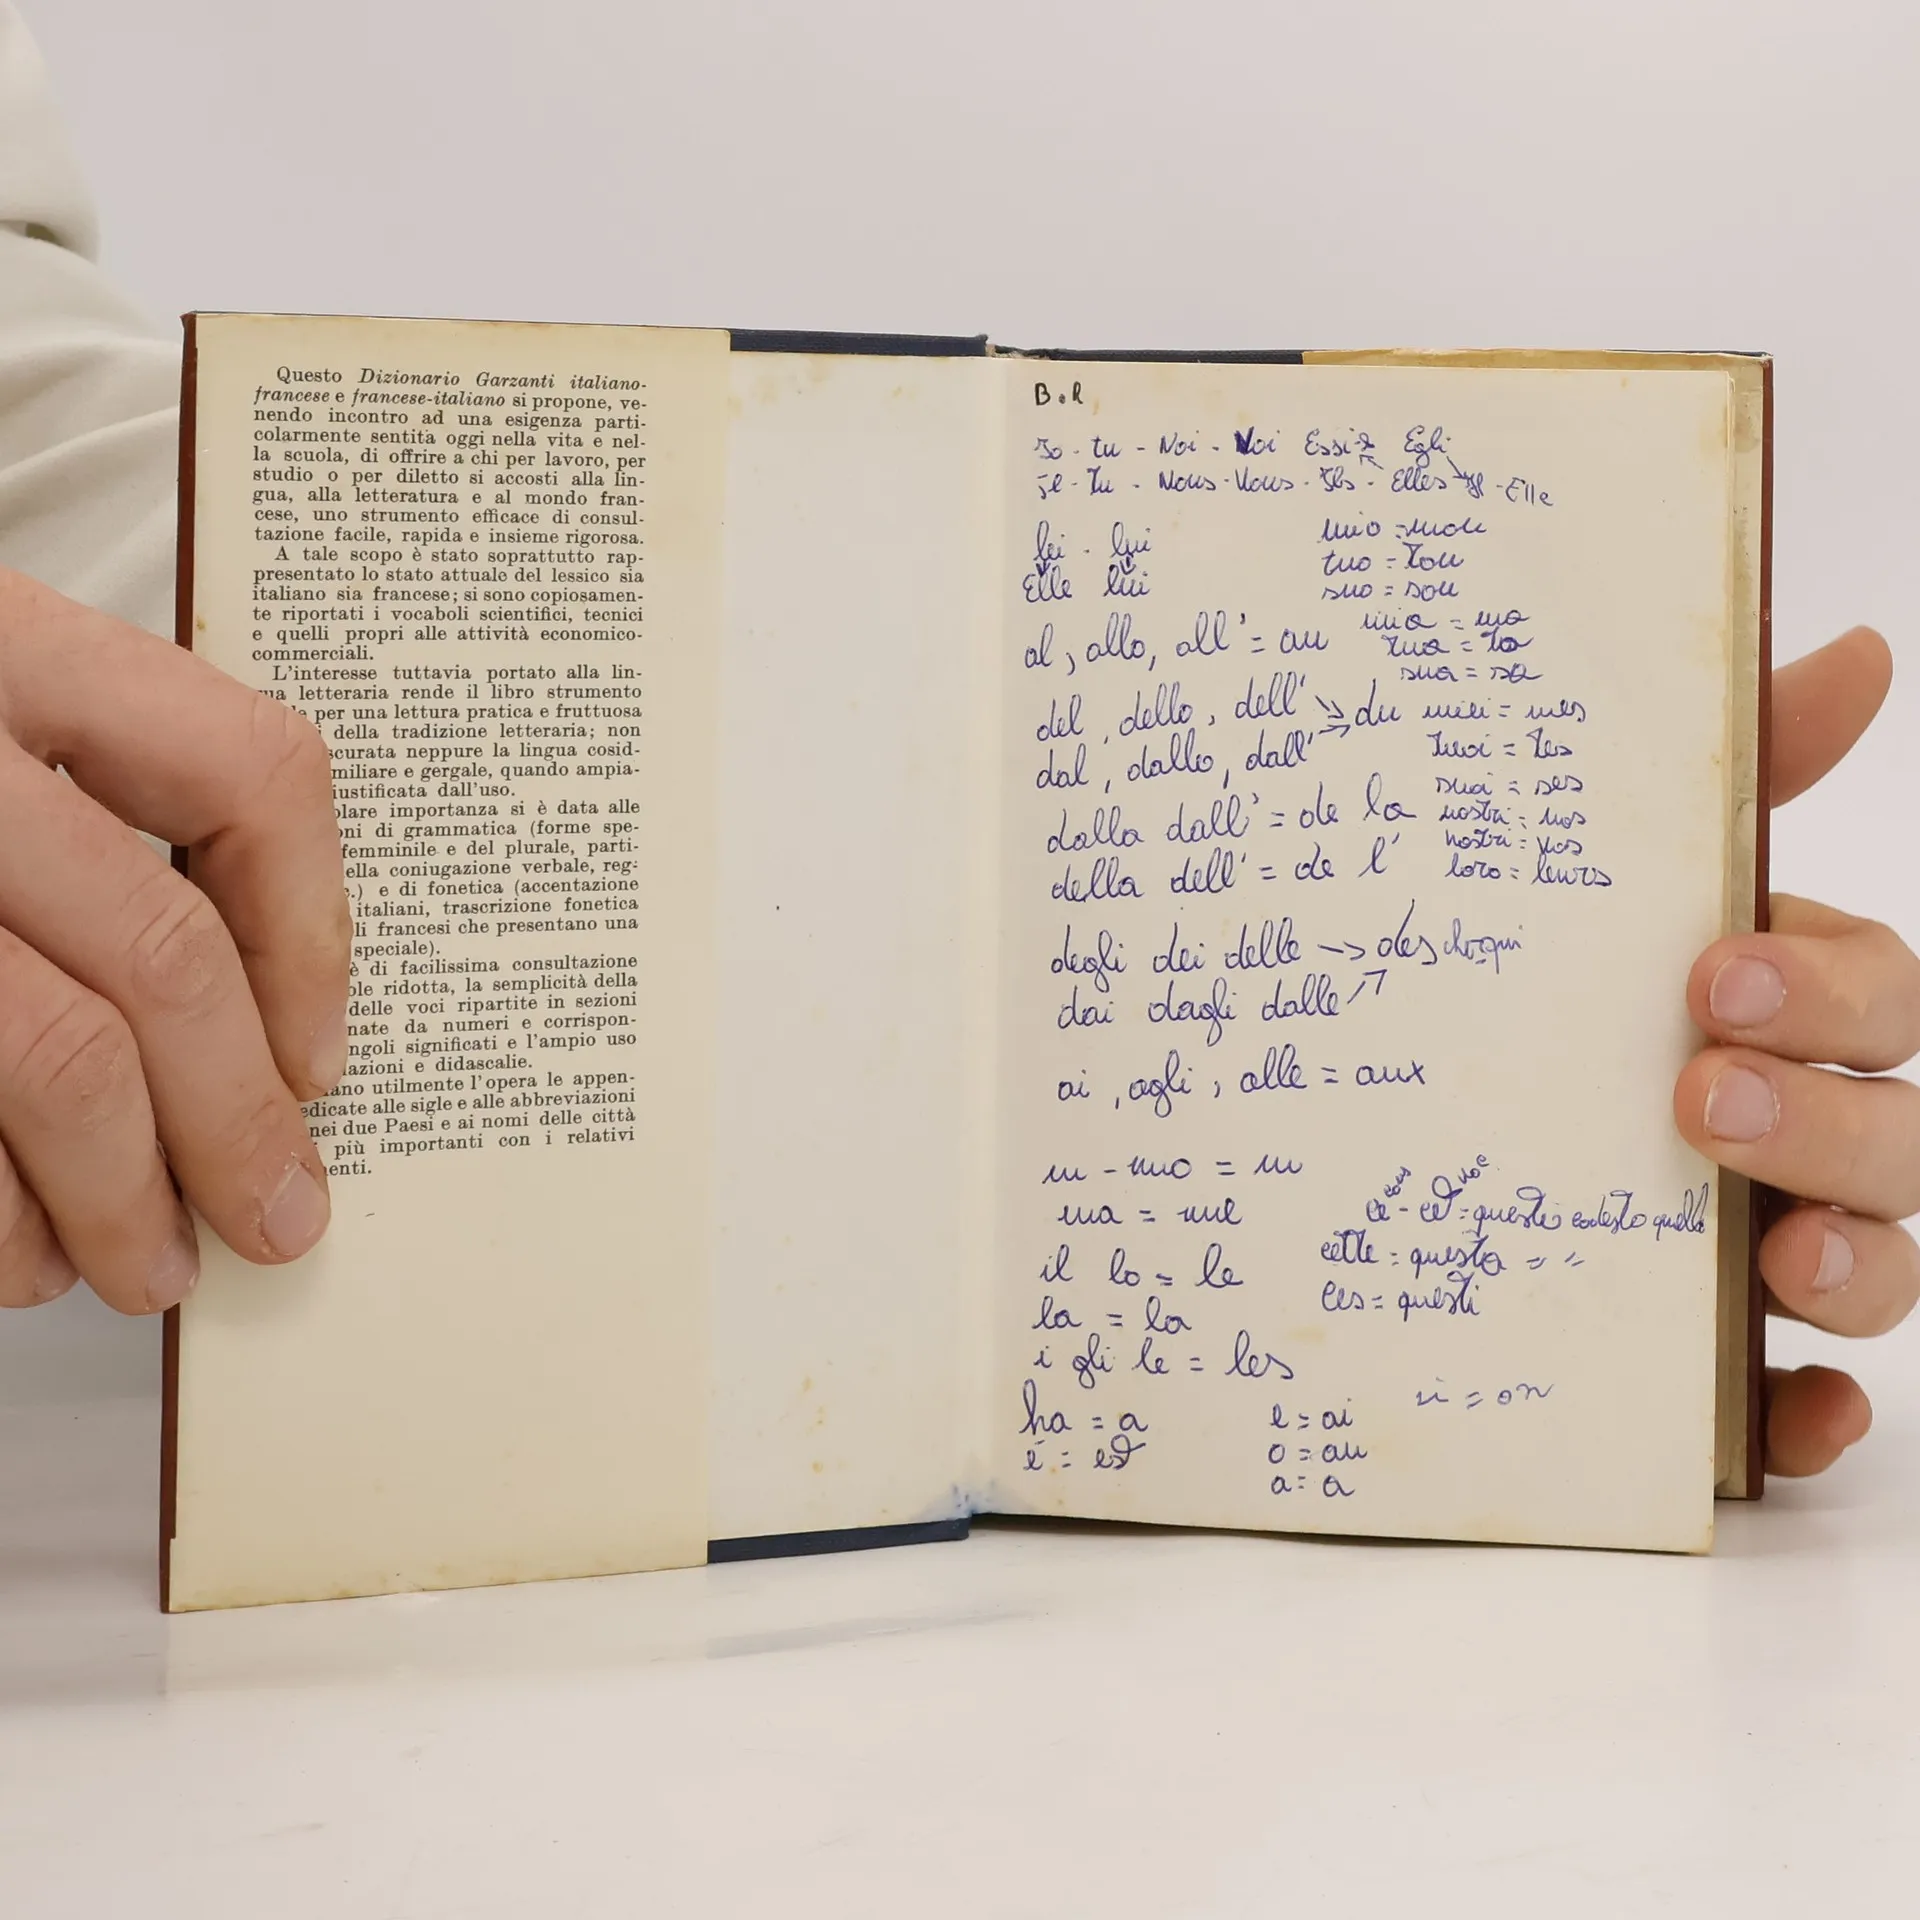 Questo Dizionario Garzanti italiano-
francese e francese-italiano si propone, ve-
nendo incontro ad una esigenza parti-
colarmente sentita oggi nella vita e nel-
la scuola, di offrire a chi per lavoro, per
studio o per diletto si accosti alla lin-
gua, alla letteratura e al mondo fran-
cese, uno strumento efficace di consul-
tazione facile, rapida e insieme rigorosa.
A tale scopo è stato soprattutto rap-
presentato lo stato attuale del lessico sia
italiano sia francese; si sono copiosamen-
te riportati i vocaboli scientifici, tecnici
e quelli propri alle attività economico-
commerciali.
L'interesse tuttavia portato alla lin-
ua letteraria rende il libro strumento
per una lettura pratica e fruttuosa
della tradizione letteraria; non
scurata neppure la lingua cosid-
miliare e gergale, quando ampia-
iustificata dall'uso.
olare importanza si è data alle
oni di grammatica (forme spe-
femminile e del plurale, parti-
ella coniugazione verbale, reg-
c.) e di fonetica (accentazione
italiani, trascrizione fonetica
li francesi che presentano una
speciale).
è di facilissima consultazione
ole ridotta, la semplicità della
delle voci ripartite in sezioni
nate da numeri e corrispon-
ngoli significati e l'ampio uso
azioni e didascalie.
ano utilmente l'opera le appen-
edicate alle sigle e alle abbreviazioni
nei due Paesi e ai nomi delle città
più importanti con i relativi
enti.
B.R
Io - tu - Noi - Voi Essi Egli
je - Tu - Nous - Vous - Ils - Elles Il - Elle
lei - lui
Elle lui
mio = mon
tuo = ton
suo = son
mia = ma
tua = ta
sua = sa
al, allo, all' = au
del, dello, dell' → du
dal, dallo, dall' →
miei = mes
tuoi = tes
suoi = ses
nostri = nos
vostri = vos
loro = leurs
dalla dall' = de la
della dell' = de l'
degli dei delle → des
dai dagli dalle ↗
ai, agli, alle = aux
un - uno = un
una = une
il lo = le
la = la
i gli le = les
ce cons - cet voc = questo codesto quello
cette = questa = =
ces = questi
si = on
ha = a
é = est
e = ai
o = au
a = a